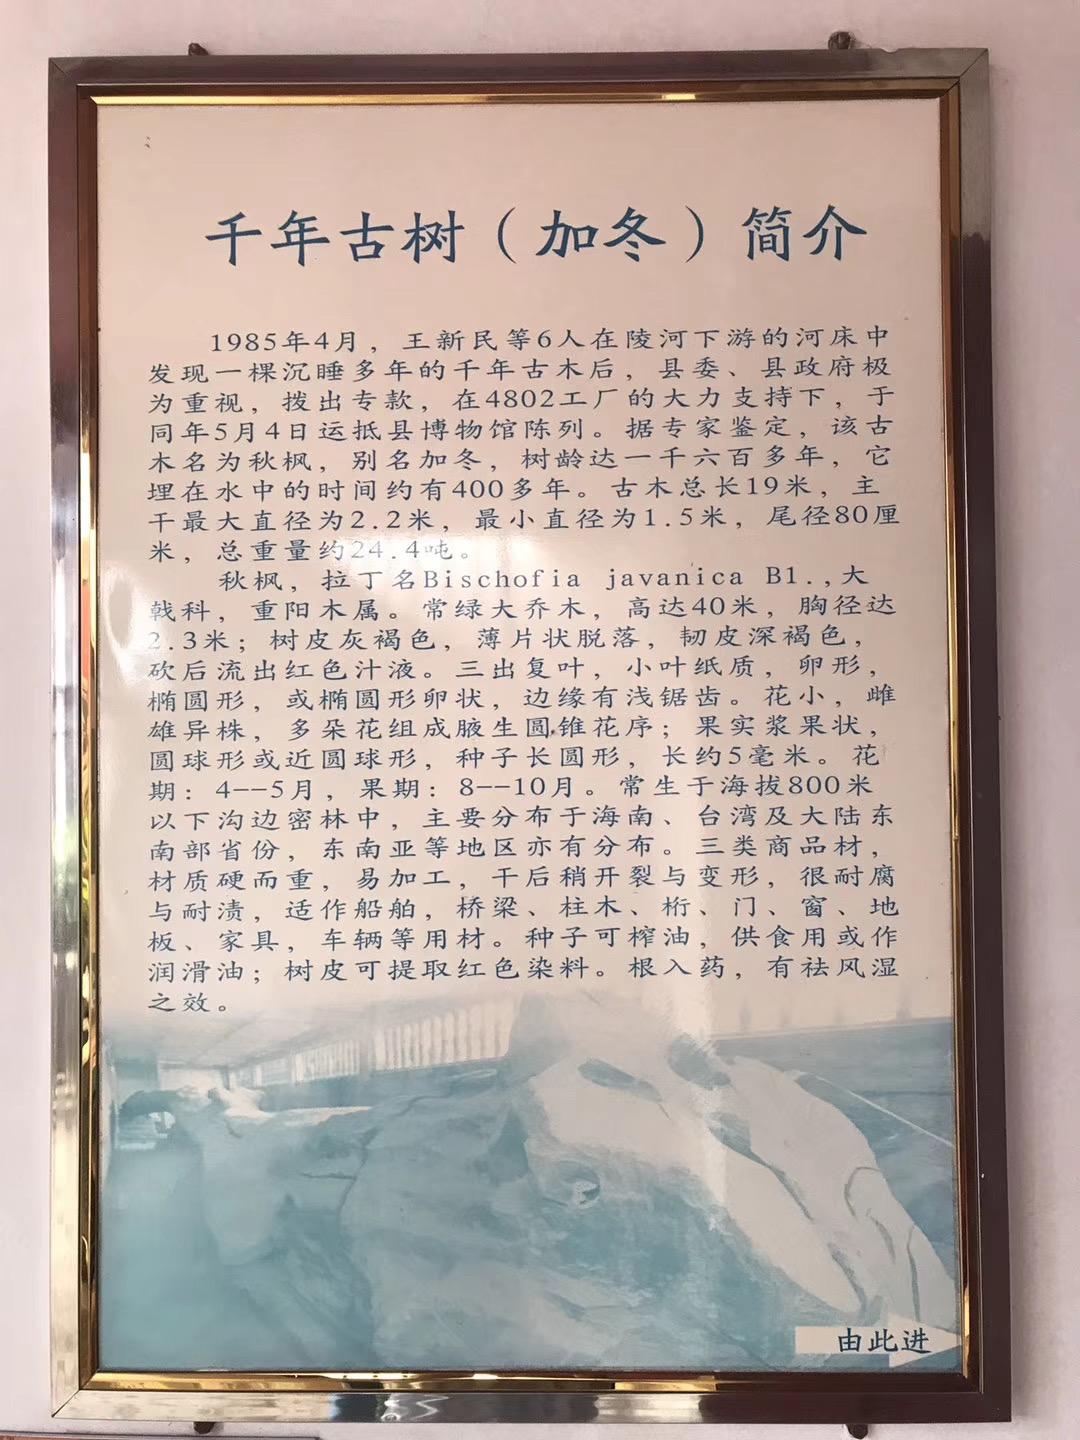 千年古树（加冬）简介
1985年4月，王新民等6人在陵河下游的河床中
发现一棵沉睡多年的千年古木后，县委、县政府极
为重视，拨出专款，在4802工厂的大力支持下，于
同年5月4日运抵县博物馆陈列。据专家鉴定，该古
木名为秋枫，别名加冬，树龄达一千六百多年，它
埋在水中的时间约有400多年。古木总长19米，主
干最大直径为2.2米，最小直径为1.5米，尾径80厘
米，总重量约24.4吨。
秋枫，拉丁名Bischofia javanica B1.,大
戟科，重阳木属。常绿大乔木，高达40米，胸径达
2.3米；树皮灰褐色，薄片状脱落，韧皮深褐色，
砍后流出红色汁液。三出复叶，小叶纸质，卵形，
椭圆形，或椭圆形卵状，边缘有浅锯齿。花小，雌
雄异株，多朵花组成腋生圆锥花序；果实浆果状，
圆球形或近圆球形，种子长圆形，长约5毫米。花
期：4--5月，果期：8--10月。常生于海拔800米
以下沟边密林中，主要分布于海南、台湾及大陆东
南部省份，东南亚等地区亦有分布。三类商品材，
材质硬而重，易加工，干后稍开裂与变形，很耐腐
与耐渍，适作船舶，桥梁、柱木、桁、门、窗、地
板、家具，车辆等用材。种子可榨油，供食用或作
润滑油；树皮可提取红色染料。根入药，有祛风湿
之效。
由此进